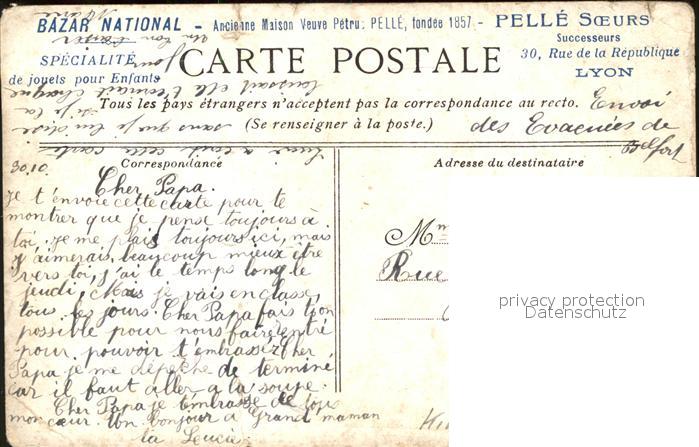 BAZAR NATIONAL - Ancienne Maison Veuve Pétrus PELLÉ, fondée 1857 - PELLÉ SŒURS
Successeurs
SPÉCIALITÉ
de jouets pour Enfants
CARTE POSTALE
30, Rue de la République
LYON
Tous les pays étrangers n'acceptent pas la correspondance au recto.
(Se renseigner à la poste.)
Envoi
des Evacuées de
Belfort
Correspondance
Adresse du destinataire
30.10.
Cher Papa.
Je t'envoie cette carte pour te
montrer que je pense toujours à
toi. je me plais toujours ici, mais
j'aimerais beaucoup mieux être
vers toi, j'ai le temps long le
jeudi, Mais je vais en classe,
tous les jours. Cher Papa fais ton
possible pour nous faire
pour pouvoir t'embrassez. Cher
Papa je me dépêche de terminé
car il faut aller a la soupe.
Cher Papa je t'embrasse de tous
mon cœur. Un bonjour a Grand maman
ta Lucie
M
Rue
privacy protection
Datenschutz